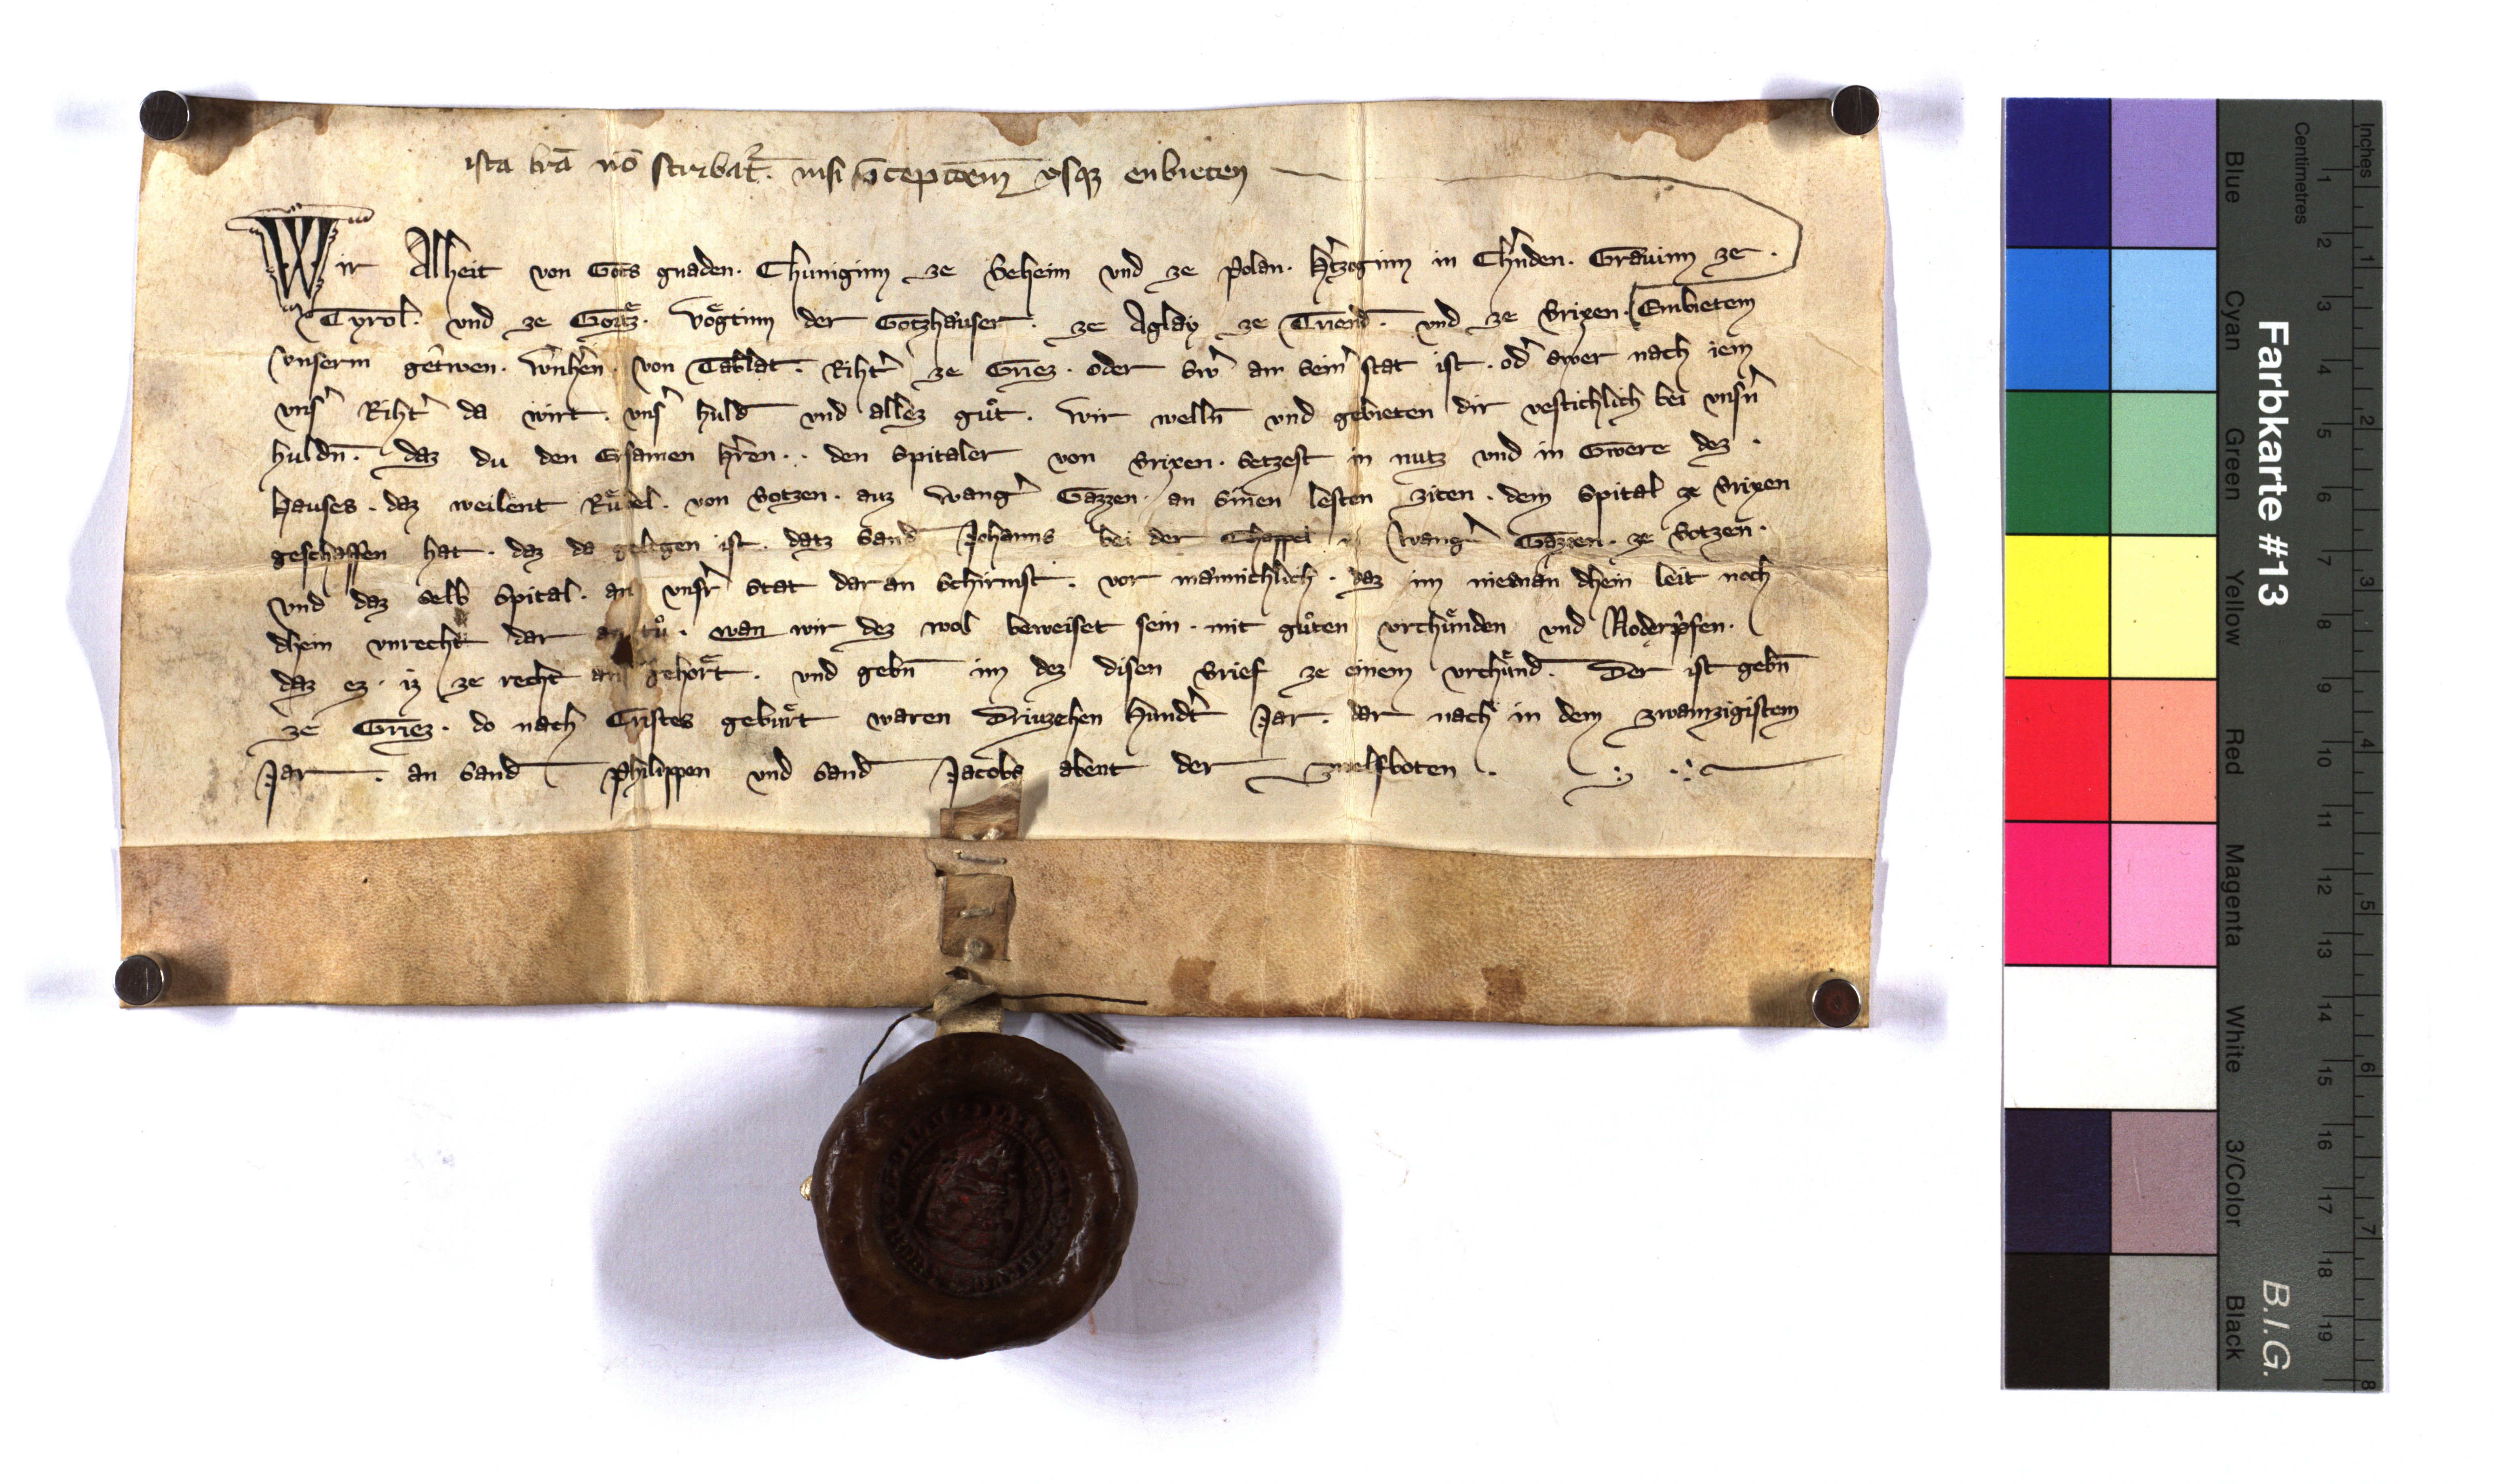 ista lrā nō scribat᷒. nisi īceptōem vsqꝫ enbieten
Wir Alheit von Gots gnaden. Chuniginn ze Beheim vnd ze Polan. H̾tzoginn in Ch̾nden. Grauinn ze.
Tyrol. vnd ze Gortz. Voͤgtinn der Gotzhauser. ze Aglay ze Triend. vnd ze Brixen. Embietem
vnserm get̾wen. W̾nh̾en von Tablat. Riht̾ ze Griez. oder Sw̾ an seim̾ stat ist. od̾ swer nach iem
vns̾ Riht̾ da wirt. vns̾ huld vnd allez guͦt. Wir welln̄ vnd gebieten dir vestichlich bei vnsn̾
huldn̄. daz du den Ersamen h̾ren.. den Spitaler von Brixen. Setzest in nutz vnd in Gwere dez.
Hauses. daz weilent Ruͤdel. von Botzen. auz Wang̾ Gazzen. an Sinen lesten ziten. dem Spital ze Brixen
geschaffen hat. daz da gelegen ist. datz Sand Johanns bei der Chappel in Wang̾ Gazzen. ze Botzen.
vnd daz selb Spital. an vnsr̾ stat daran Schirmst. vor mannichlich. daz im nieman dhein leit noch
dhein vnrecht dar an tuͦ. wan wir dez wol beweiset sein. mit guͦten vrchuͤnden vnd
daz ez. iz ze recht an gehoͤrt. vnd gebn̄ im dez disen Brief ze einem vrchuͤnd. Der ist gebn̄
ze Griez. do nach Cristes geburt waren Driuzehen hundt̾ Jar. dar nach in dem zwainzigistem
Jar. an Sand Philippen vnd Sand Jacobs abent der zwelfboten.
Farbkarte #13 B.I.G.
Blue Cyan Green Yellow Red Magenta White 3/Color Black
Centimetres 1 2 3 4 5 6 7 8 9 10 11 12 13 14 15 16 17 18 19
Inches 1 2 3 4 5 6 7 8